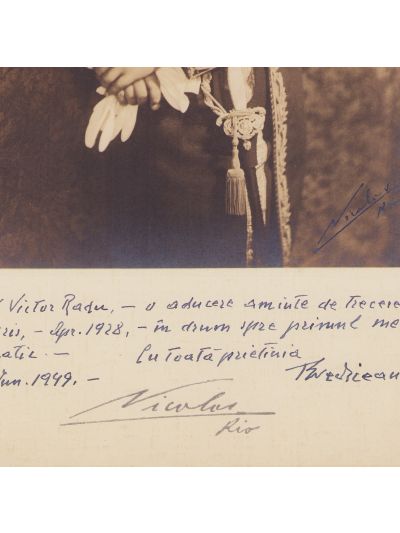 Victor Radu, – o aducere aminte de trecere
ris, – Apr. 1928, – în drum spre primul me
atic. – Cu toată prietinia
un. 1949. – Brediceanu
Nicolas
Rio